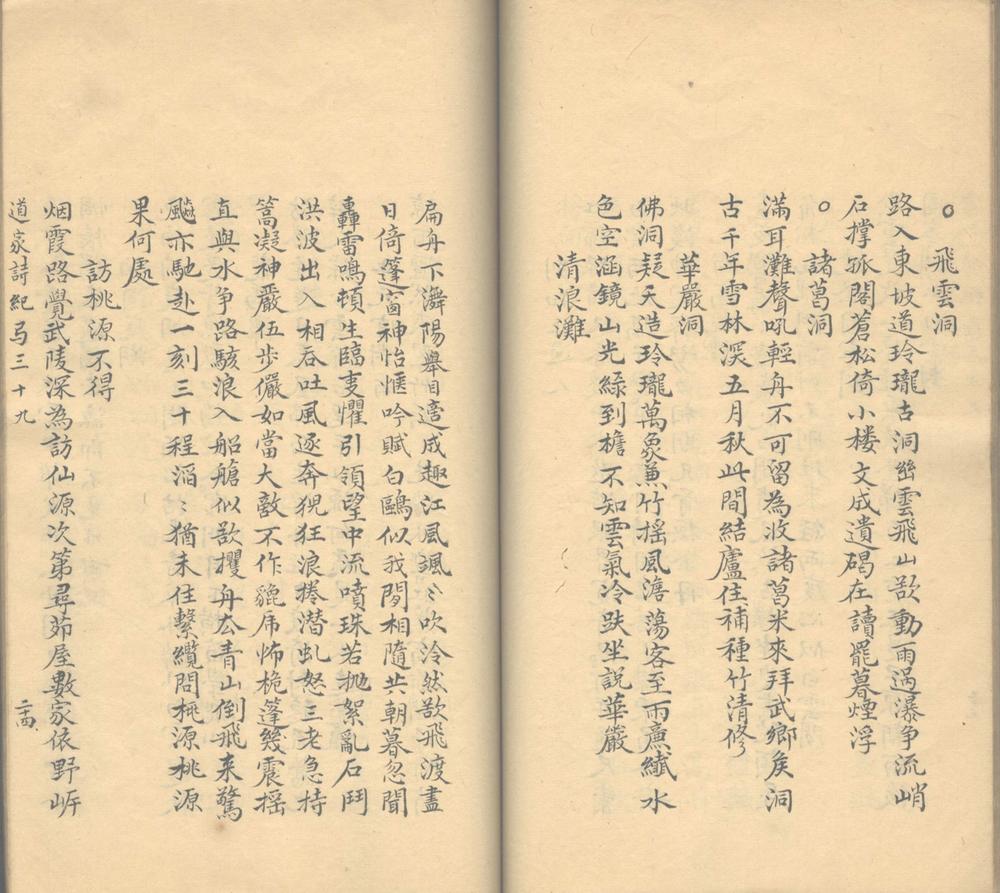 ○ 飛雲洞
路入東坡道玲瓏古洞幽雲飛山欲動雨過瀑爭流峭
石撐孤閣蒼松倚小楼文成遺碣在讀罷暮煙浮
○ 諸葛洞
滿耳灘聲吼輕舟不可留為收諸葛米來拜武鄉矦洞
古千年雪林深五月秋此間結廬住補種竹清修
華嚴洞
佛洞疑天造玲瓏萬象兼竹摇風澹蕩客至雨亷纖水
色空涵鏡山光綠到檐不知雲氣冷趺坐説華嚴
清浪灘
扁舟下㵲陽舉目遠成趣江風颯〻吹泠然欲飛渡盡
日倚蓬窗神怡愜吟賦白鷗似我閒相隨共朝暮忽聞
轟雷鳴頓生臨변懼引領望中流噴珠若抛絮亂石鬥
洪波出入相吞吐風逐奔猊狂浪捲潜虬怒三老急持
篙凝神嚴伍步儼如當大敵不作貔乕怖桅篷幾震摇
直與水争路駭浪入船艙似欲攫舟去青山倒飛来驚
飈亦馳赴一刻三十程滔〻猶未住繫纜問桃源桃源
果何處
訪桃源不得
烟霞路覺武陵深為訪仙源次第尋茆屋數家依野岍
道家詩紀弓三十九